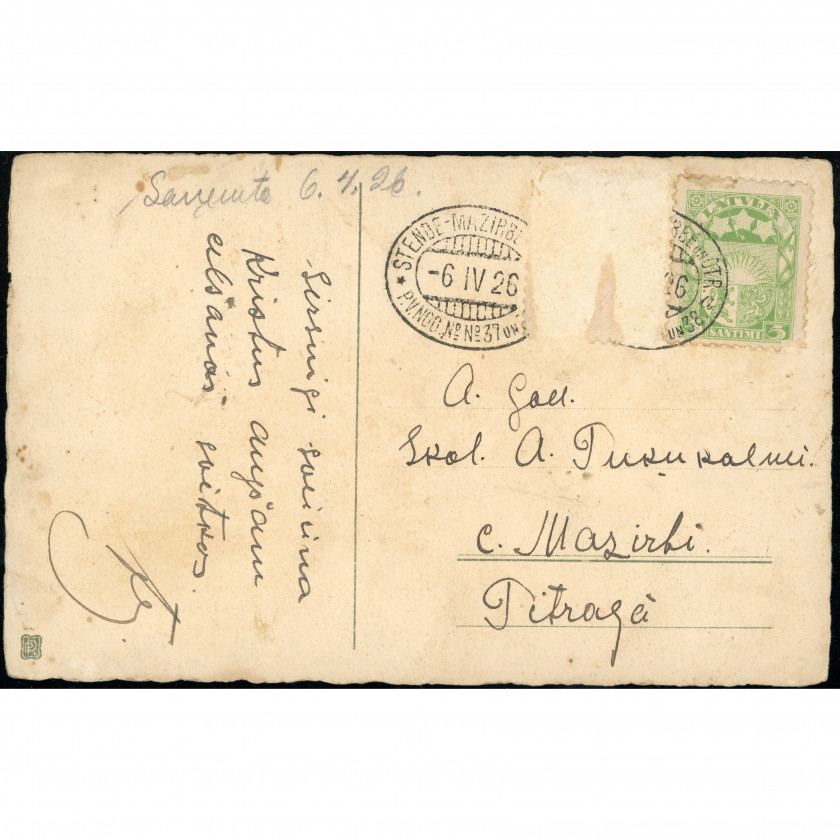 Saņemta 6.4.26.
Sirsnigi sveicina
Kristus augšam
celšanās svētkos.
STENDE-MAZIRBE
-6 IV 26
P.V.NOD. № № 37 un 38
LATVIJA
3
SANTIMI
A. God.
Skol. A. Tuķukalni.
c. Mazirbi.
Pitragā